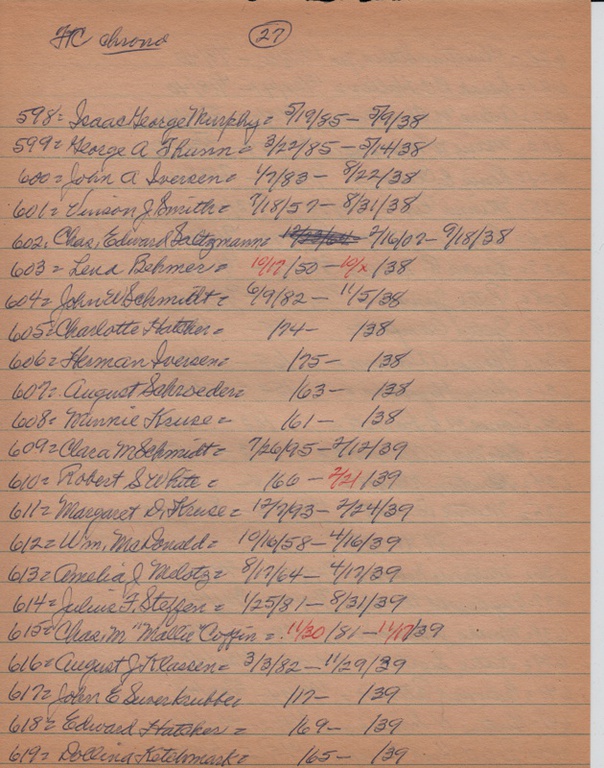 FC chrono 27
598 = Isaac George Murphy = 5/19/85 - 5/9/38
599 = George A Thunn = 3/22/85 - 5/14/38
600 = John A Iversen = 1/7/83 - 8/22/38
601 = Vinson J. Smith = 7/18/57 - 8/31/38
602. Chas. Edward Saltzmann = 2/16/07 - 9/18/38
603 = Lena Behmer = 10/17/50 - 10/x/38
604 = John W Schmidt = 6/9/82 - 11/5/38
605 = Charlotte Hatcher = /74 - /38
606 = Herman Iversen = /75 - /38
607 = August Schroeder = /63 - /38
608 = Minnie Kruse = /61 - /38
609 = Clara M Schmidt = 7/26/95 - 2/12/39
610 = Robert S White = /66 - 2/21/39
611 = Margaret D. Kruse = 12/7/93 - 2/24/39
612 = Wm. McDonald = 10/16/58 - 4/16/39
613 = Amelia J Melotz = 8/17/64 - 4/17/39
614 = Julius F. Steffen = 1/25/81 - 8/31/39
615 = Chas. M "Mallie" Coffin = 11/30/81 - 11/17/39
616 = August J Klassen = 3/3/82 - 11/29/39
617 = John E Suverkrubbe /17 - /39
618 = Edward Hatcher = /69 - /39
619 = Dollina Ketchmark = /65 - /39